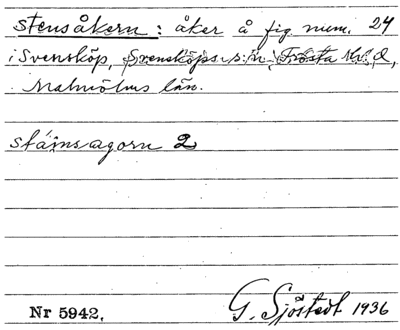 Stensåkern: åker å fig. num. 24
i Svensköp, Svensköps s:n, Frosta hd,
Malmöhus län.
stáinsagorn 2
Nr 5942. G. Sjöstedt 1936